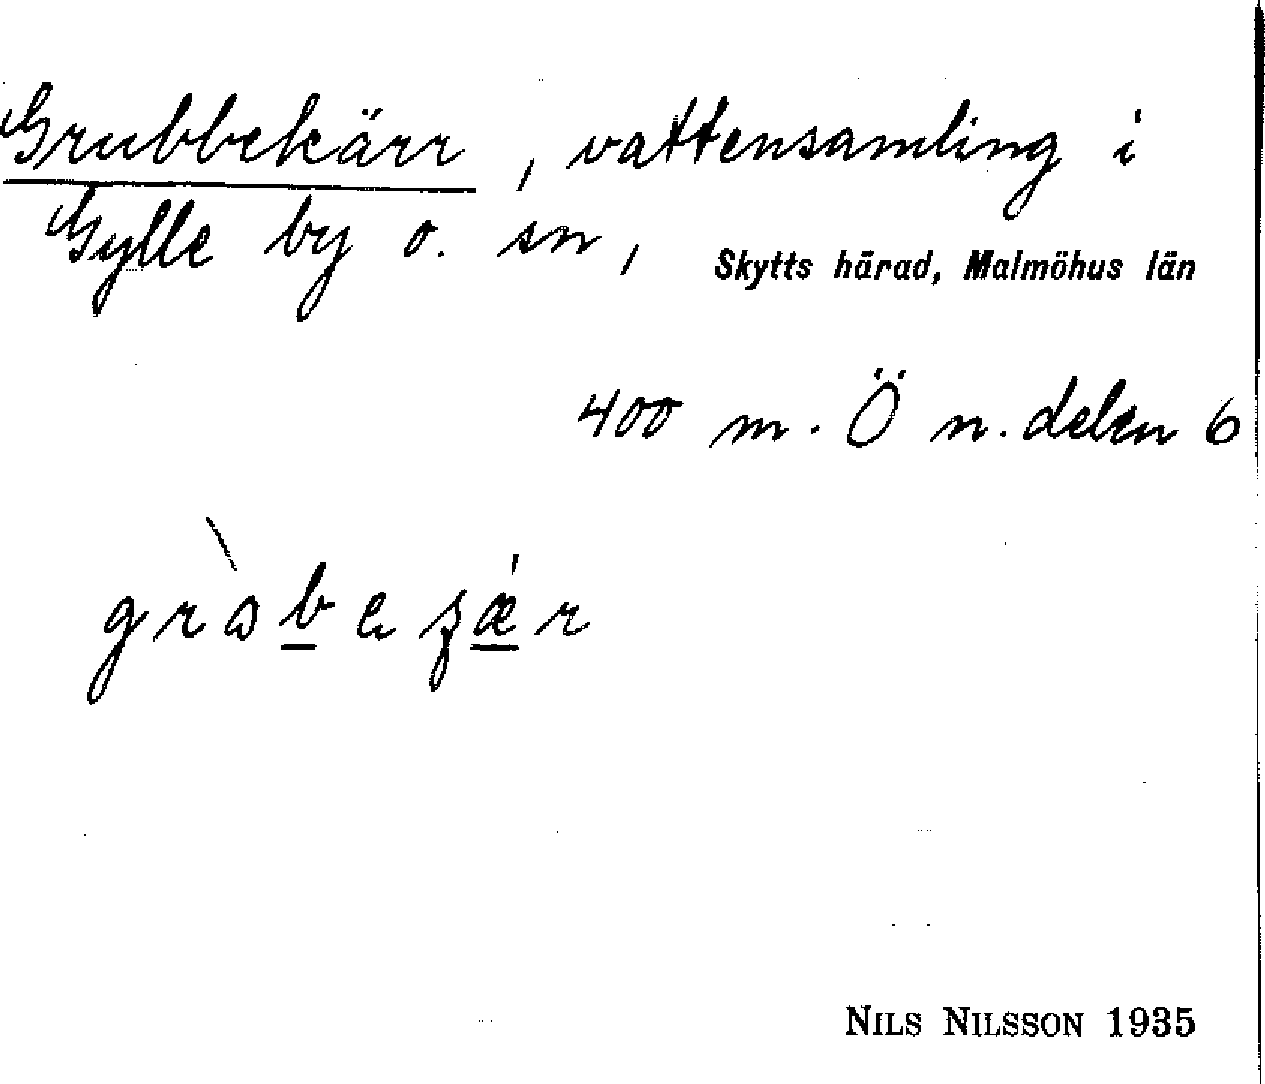 Grubbekärr, vattensamling i
Gylle by o. sn, Skytts härad, Malmöhus län
400 m. Ö n. delen 6
NILS NILSSON 1935